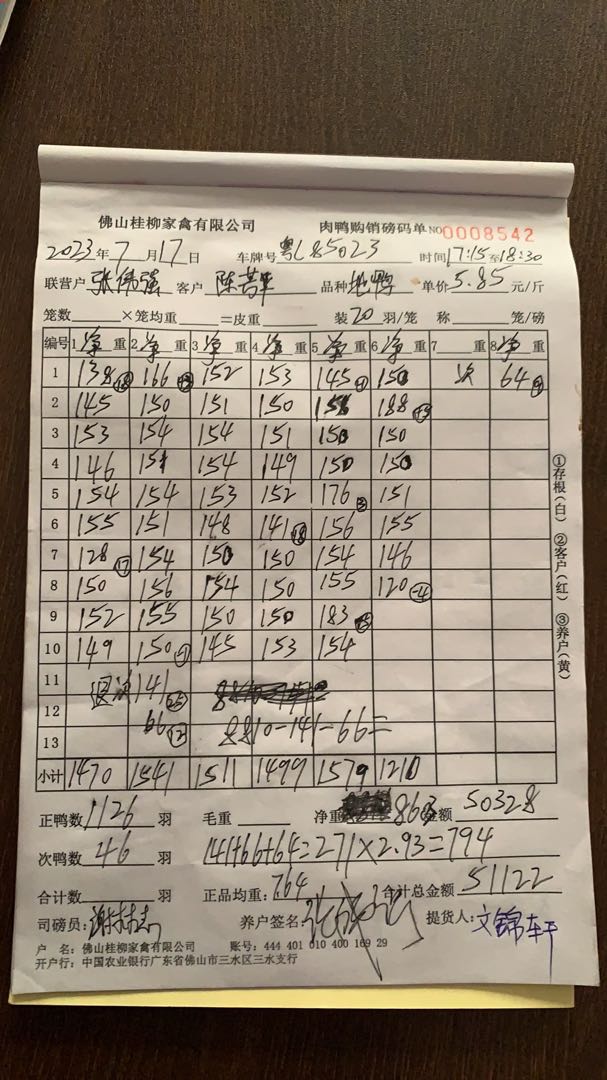 佛山桂柳家禽有限公司 肉鸭购销磅码单 NO 0008542
2023年7月17日 车牌号 粤L85023 时间17:15至18:30
联营户 张伟强 客户 品种 地鸭 单价 5.85 元/斤
笼数 ×笼均重 =皮重 装20羽/笼 称 笼/磅
编号 1净重 2净重 3净重 4净重 5净重 6净重 7 重 8净重
1 138 166 152 153 145 150 次 64
2 145 150 151 150 188
3 153 154 154 151 150 150
4 146 151 154 149 150 150
5 154 154 153 152 176 151
6 155 151 148 141 156 155
7 128 154 150 150 154 146
8 150 156 154 150 155 120
9 152 155 150 150 183
10 149 150 145 153 154
11 退次 141
12 66
13 8810-141-66=
小计 1470 1541 1511 1499 1579 1210
正鸭数 1126 羽 毛重 净重 8603 金额 50328
次鸭数 46 羽 141+66+64=271×2.93=794
合计数 羽 正品均重: 7.64 合计总金额 51122
司磅员: 养户签名: 提货人: 文锦轩
户 名: 佛山桂柳家禽有限公司 账号: 444 401 010 400 169 29
开户行: 中国农业银行广东省佛山市三水区三水支行
①存根(白) ②客户(红) ③养户(黄)